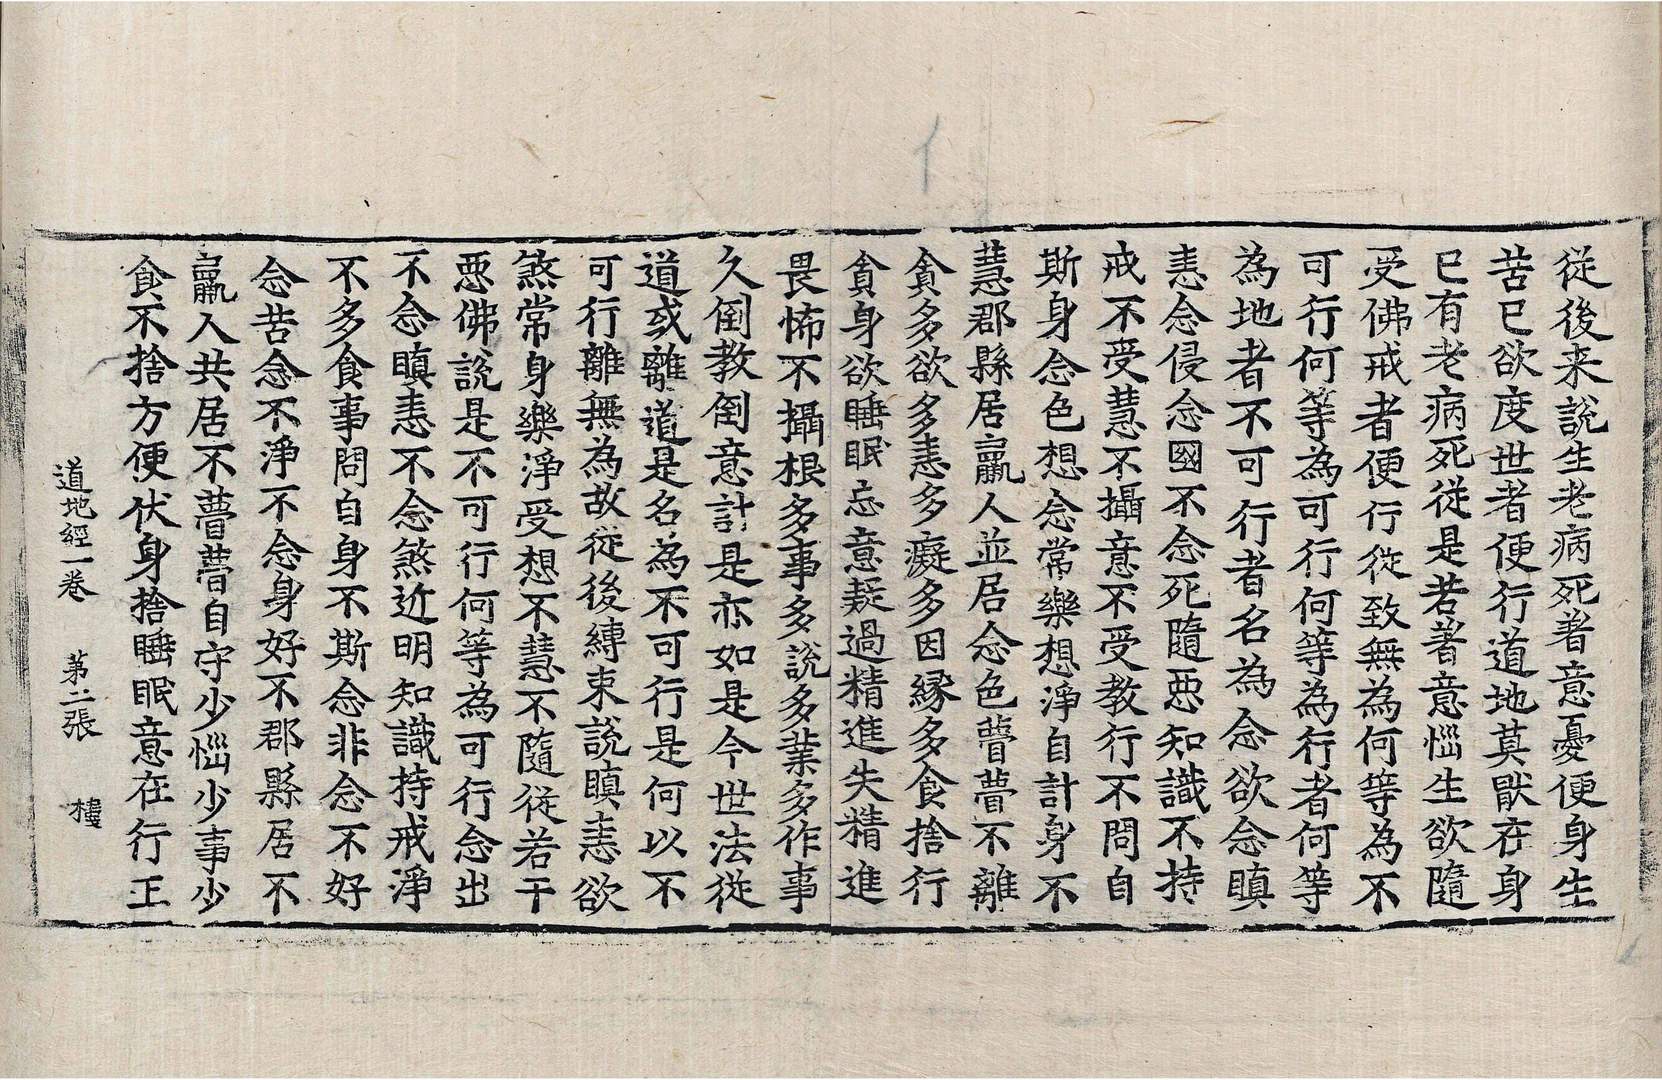 從後来說生老病死著意憂便身生
苦已欲度世者便行道地莫猒在身
已有老病死從是若著意惱生欲隨
受佛戒者便行從致無為何等為不
可行何等為可行何等為行者何等
為地者不可行者名為念欲念瞋
恚念侵念國不念死隨惡知識不持
戒不受慧不攝意不受教行不問自
斯身念色想念常樂想淨自計身不
慧郡縣居羸人並居念色瞢瞢不離
貪多欲多恚多癡多因緣多食捨行
貪身欲睡眠忘意疑過精進失精進
畏怖不攝根多事多說多業多作事
久倒教倒意計是亦如是今世法從
道或離道是名為不可行是何以不
可行離無為故從後縛束說瞋恚欲
煞常身樂淨受想不慧不隨從若干
惡佛說是不可行何等為可行念出
不念瞋恚不念煞近明知識持戒淨
不多食事問自身不斯念非念不好
念苦念不淨不念身好不郡縣居不
羸人共居不瞢瞢自守少惱少事少
食不捨方便伏身捨睡眠意在行正
道地經一卷　第二張　樓